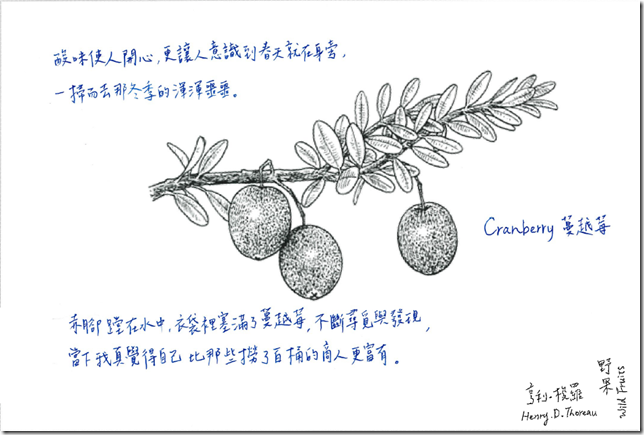 酸味使人開心,更讓人意識到春天就在身旁,
一掃而去那冬季的渾渾噩噩。
Cranberry 蔓越莓
赤腳蹚在水中,衣袋裡塞滿了蔓越莓,不斷尋覓與發現,
當下我真覺得自己比那些撈了百桶的商人更富有。
亨利.梭羅
Henry.D.Thoreau
野果
Wild Fruits